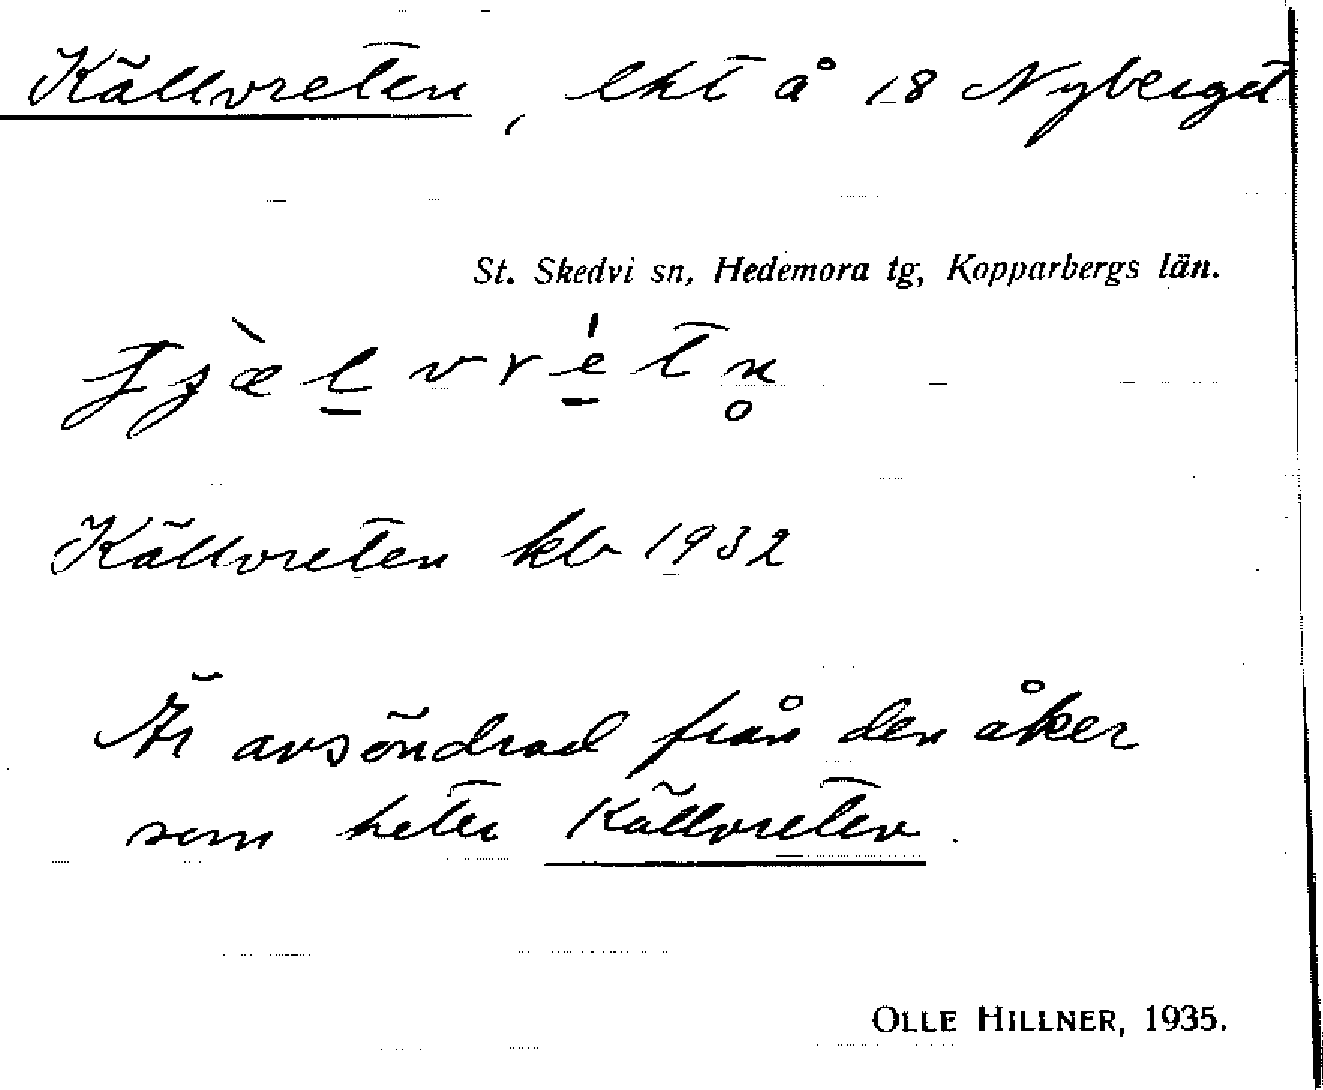 Källvreten, lht å 18 Nyberget
St. Skedvi sn, Hedemora tg, Kopparbergs län.
Källvreten kb 1932
Är avsöndrad från den åker
som heter Källvreten.
OLLE HILLNER, 1935.